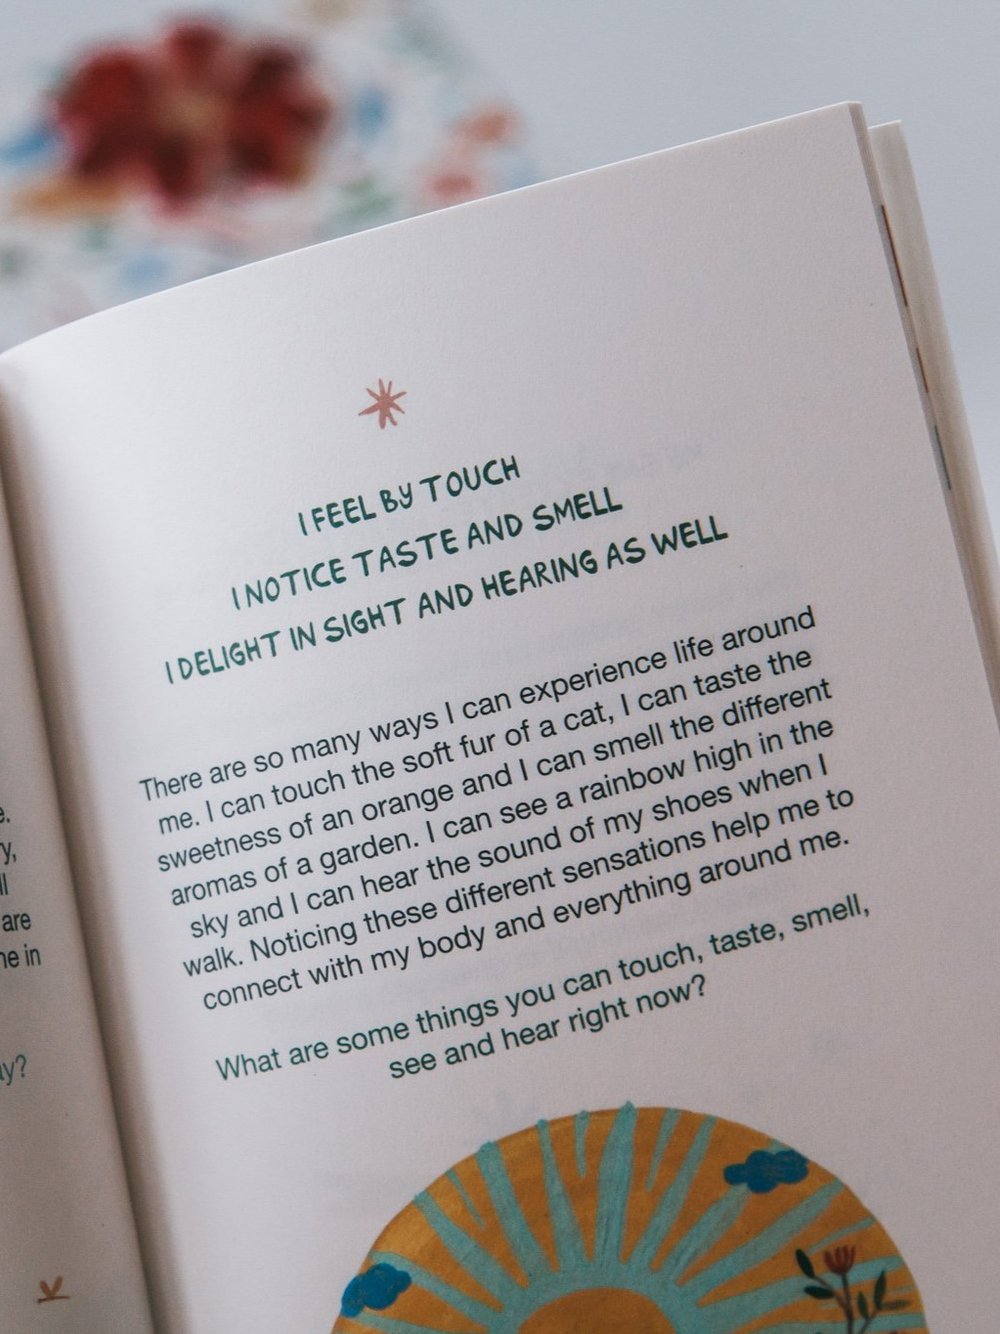 I FEEL BY TOUCH
I NOTICE TASTE AND SMELL
I DELIGHT IN SIGHT AND HEARING AS WELL
There are so many ways I can experience life around
me. I can touch the soft fur of a cat, I can taste the
sweetness of an orange and I can smell the different
aromas of a garden. I can see a rainbow high in the
sky and I can hear the sound of my shoes when I
walk. Noticing these different sensations help me to
connect with my body and everything around me.
What are some things you can touch, taste, smell,
see and hear right now?
are
in